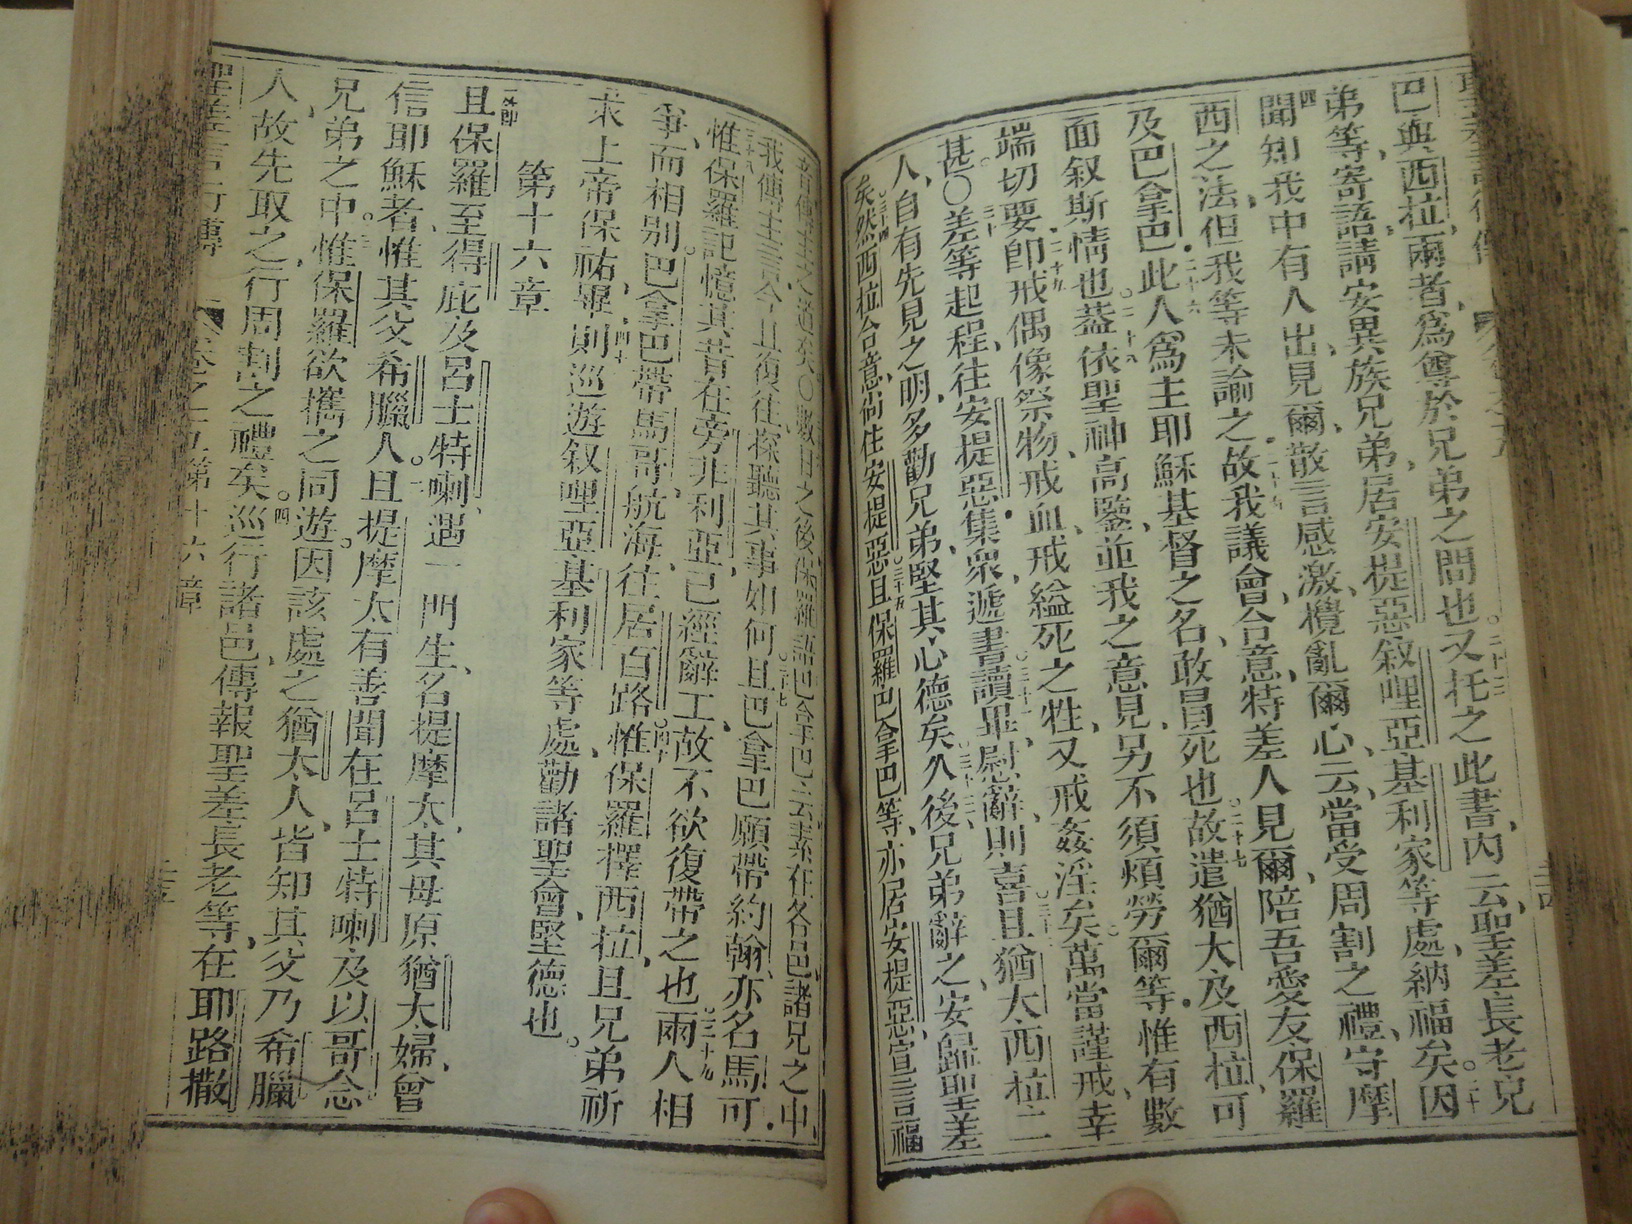 巴與西拉兩者爲尊於兄弟之間也。二十三又托之此書內云聖差長老兄
弟等寄語請安異族兄弟居安提惡叙哩亞基利家等處納福矣。二十四因
聞知我中有人出見爾散言感激攪亂爾心云當受周割之禮守摩
西之法但我等未諭之二十五故我議會合意特差人見爾陪吾愛友保羅
及巴拿巴二十六此人爲主耶穌基督之名敢冒死也二十七故遣猶大及西拉可
面叙斯情也二十八葢依聖神高鑒並我之意見另不須煩勞爾等惟有數
端切要二十九卽戒偶像祭物戒血戒縊死之牲又戒姦淫矣萬當謹戒幸
甚○三十差等起程往安提惡集衆遞書三十一讀畢慰辭則喜三十二且猶大西拉二
人自有先見之明多勸兄弟堅其心德矣三十三久後兄弟辭之安歸聖差
矣三十四然西拉合意尙住安提惡三十五且保羅巴拿巴等亦居安提惡宣言福
我傳主言今且復往探聽其事如何三十七且巴拿巴願帶約翰亦名馬可
三十八惟保羅記憶其昔在旁非利亞已經辭工故不欲復帶之也三十九兩人相
爭而相別巴拿巴帶馬哥航海往居百路四十惟保羅擇西拉且兄弟祈
求上帝保祐畢四十一則巡遊叙哩亞基利家等處勸諸聖會堅德也。
第十六章
一節且保羅至得庇及呂士特喇遇一門生名提摩太其母原猶太婦曾
信耶穌者惟其父希臘人。二且提摩太有善聞在呂士特喇及以哥念
兄弟之中。三惟保羅欲攜之同遊。因該處之猶太人皆知其父乃希臘
人故先取之行周割之禮矣。四巡行諸邑傳報聖差長老等在耶路撒
第十六章